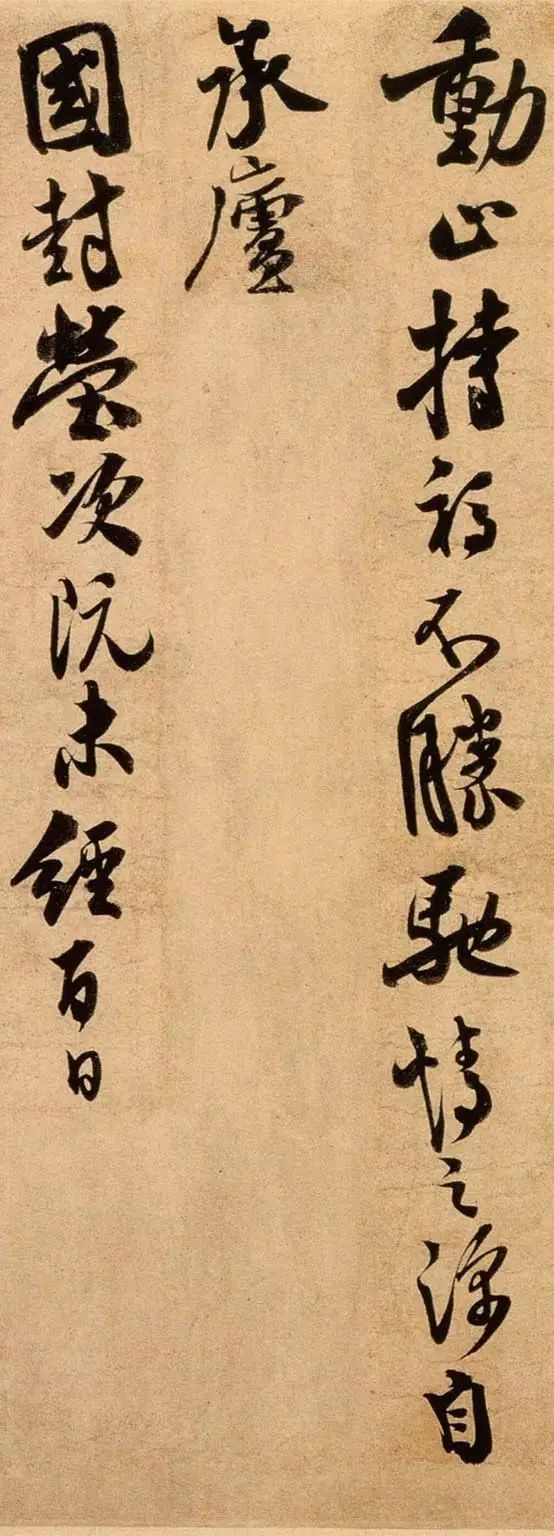 動止持福不勝馳情之深自
承廬
國封塋次既未經百日